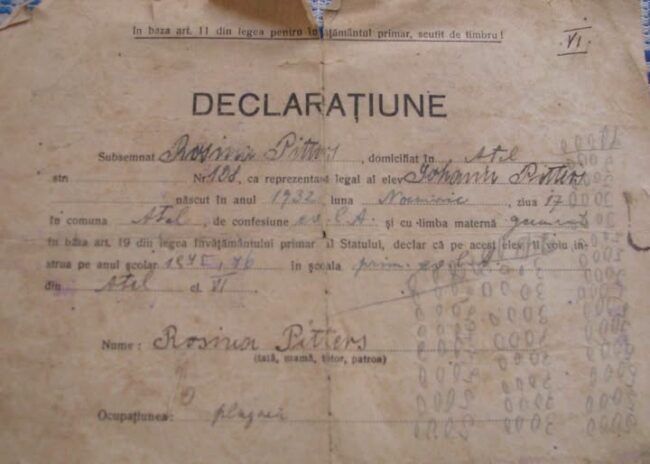 In baza art. 11 din legea pentru învățământul primar, scutit de timbru!
VI.
DECLARAȚIUNE
Subsemnat Rosina Pitters, domiciliat în Atel
str. Nr. 128, ca reprezentant legal al elev Johann Pitters
născut în anul 1932 luna Noemvrie, ziua 17
în comuna Atel, de confesiune ev. C.A. și cu limba maternă
în baza art. 19 din legea învățământului primar al Statului, declar că pe acest elev îl voiu in-
strua pe anul școlar în școala prim.
din Atel cl. VI
Nume: Rosina Pitters
(tată, mamă, tutor, patron)
Ocupațiunea: